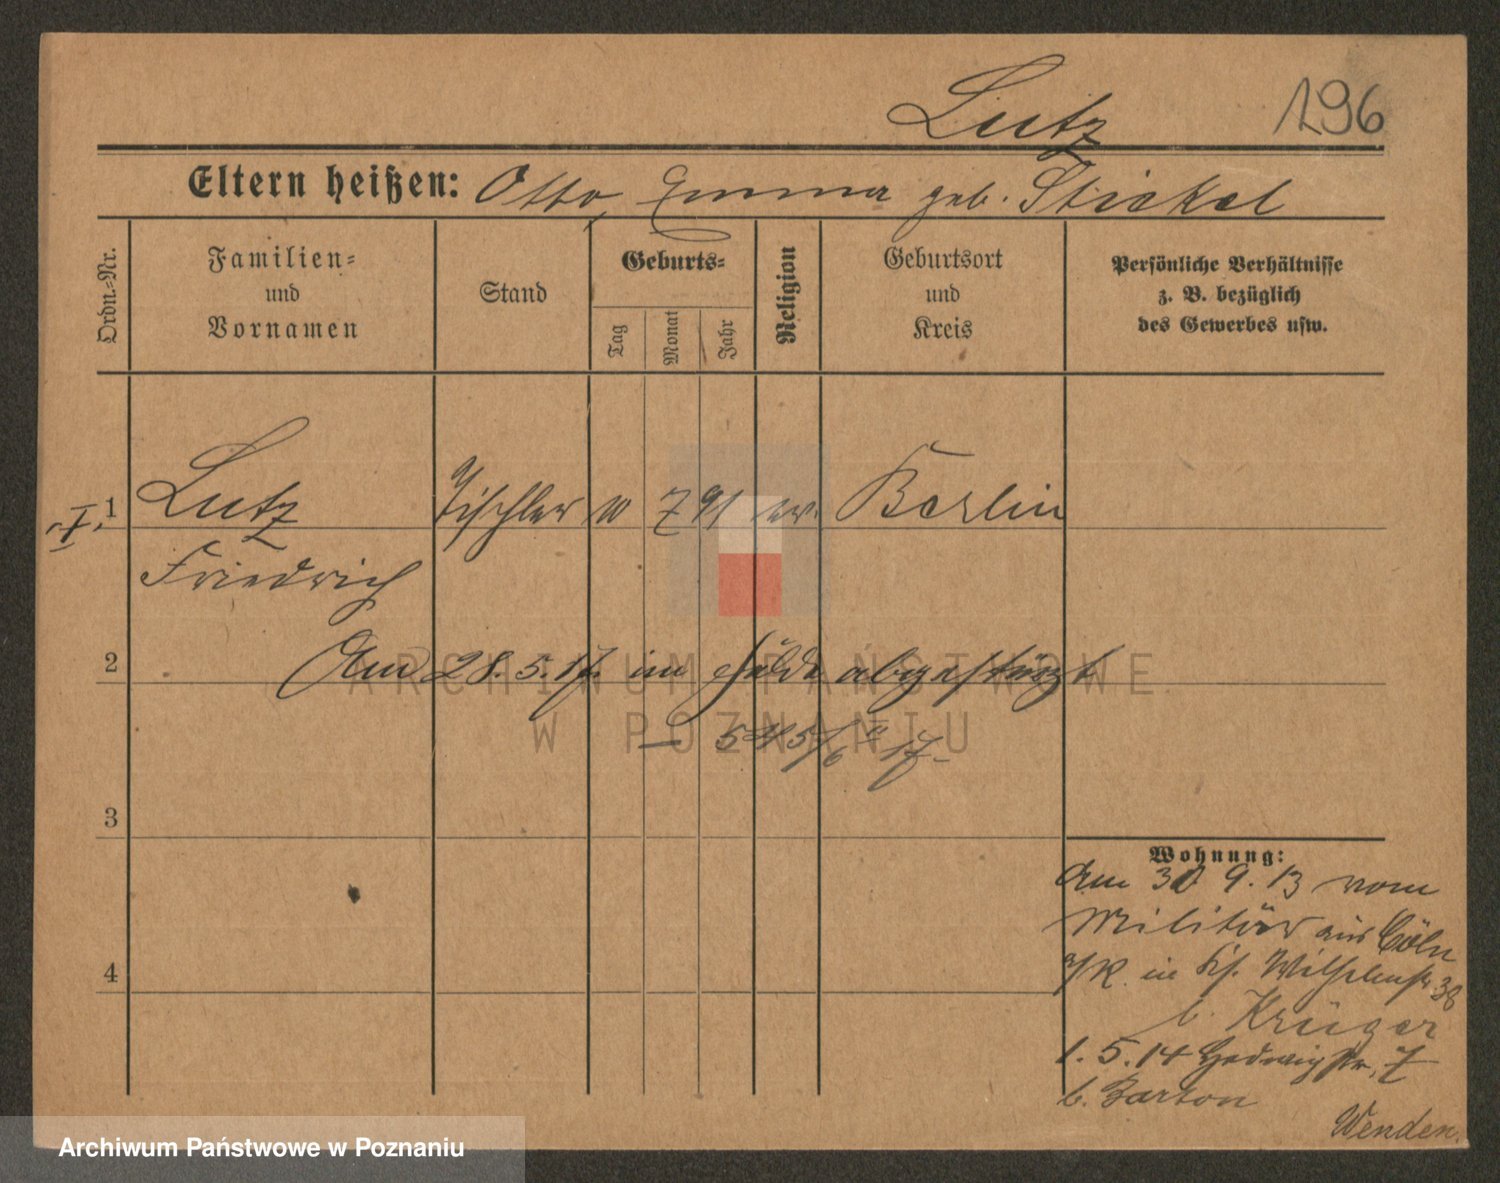 Lutz 196
Eltern heißen: Otto, Emma geb. Stickel
Ordn.=Nr.
Familien=
und
Vornamen
Stand
Geburts=
Tag
Monat
Jahr
Religion
Geburtsort
und
Kreis
Persönliche Verhältnisse
z. B. bezüglich
des Gewerbes usw.
I. 1 Lutz Tischler 10 7 91 ev. Berlin
Friedrich
2 Am 28. 5. 17. im Felde abgestürzt
ARCHIWUM PAŃSTWOWE
W POZNANIU
3
Wohnung:
Am 30 9. 13 vom
Militär aus Cöln
a/R. in Wilhelmstr 38
b. Krüger
4
1. 5. 14 Hedwigstr. 7
b. Barton
Wenden.
Archiwum Państwowe w Poznaniu